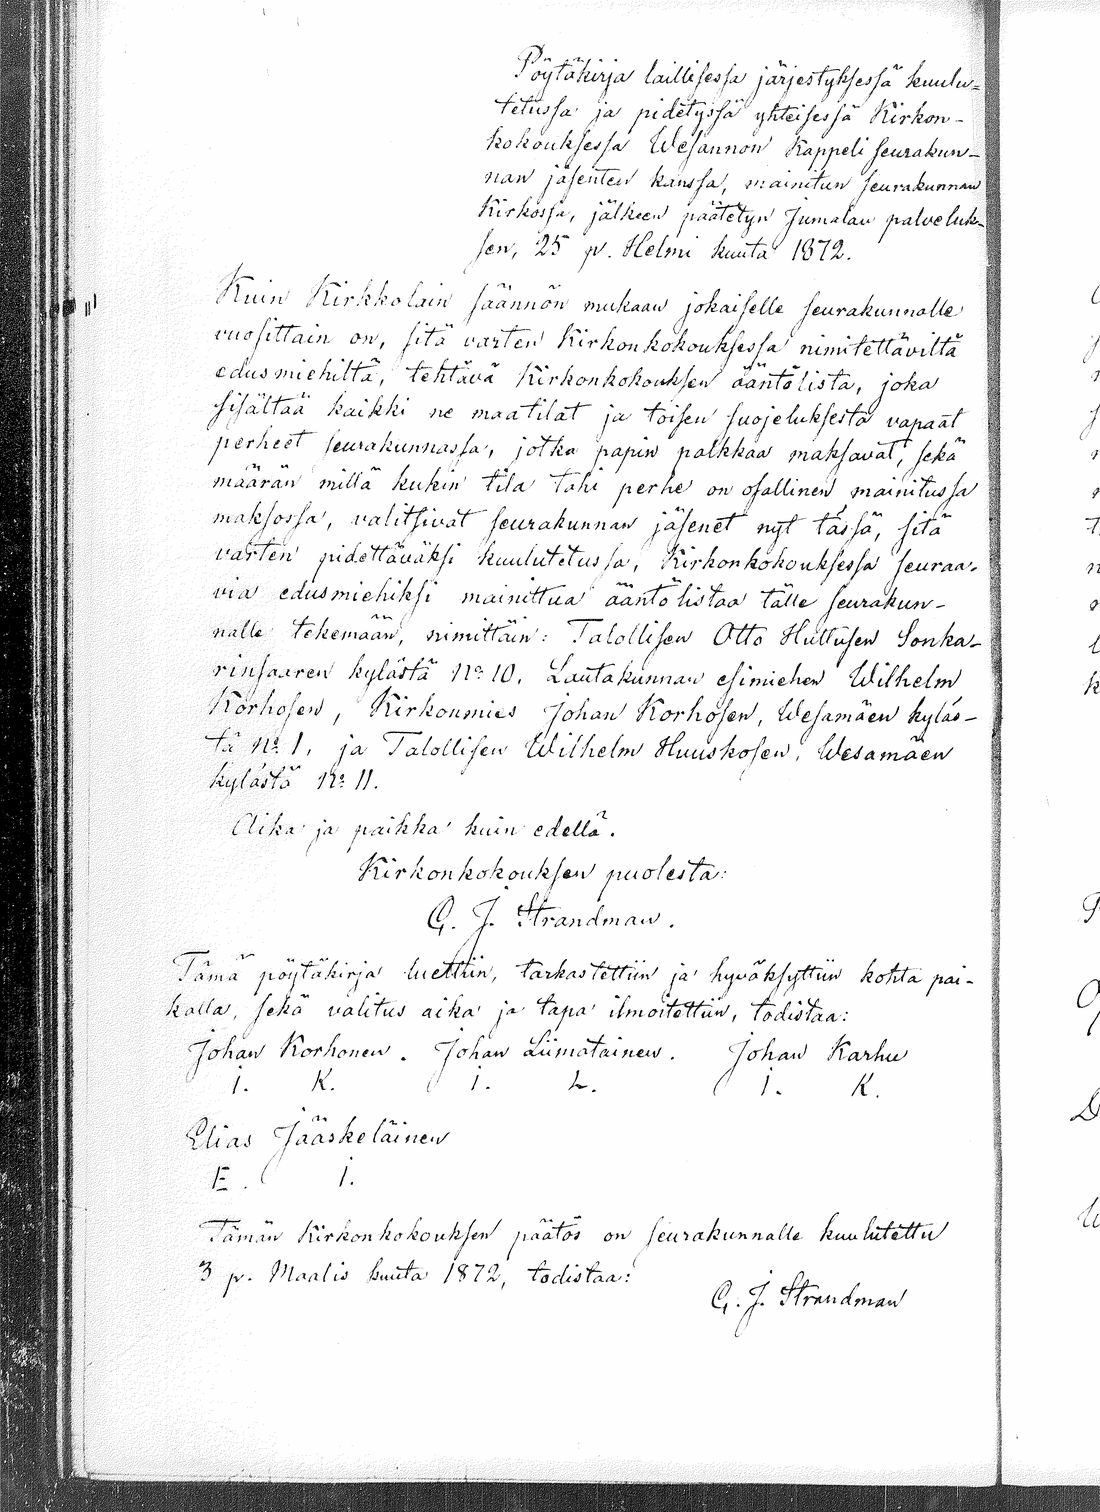 Pöytäkirja laillisessa järjestyksessä kuulu-
tetussa ja pidetyssä yhteisessä Kirkon-
kokouksessa Wesannon Kappeli seurakun-
nan jäsenten kanssa, mainitun seurakunnan
Kirkossa, jälkeen päätetyn Jumalan palveluk-
sen, 25 p. Helmi kuuta 1872.
Kuin Kirkkolain säännön mukaan jokaiselle seurakunnalle
vuosittain on, sitä varten Kirkonkokouksessa nimitettäviltä
edusmiehiltä, tehtävä Kirkonkokouksen ääntölista, joka
sisältää kaikki ne maatilat ja toisen suojeluksesta vapaat
perheet seurakunnassa, jotka papin palkkaa maksavat, sekä
määrän millä kukin tila tahi perhe on osallinen mainitussa
maksossa, valitsivat seurakunnan jäsenet nyt tässä, sitä
varten pidettäväksi kuulutetussa, Kirkonkokouksessa seuraa-
via edusmiehiksi mainittua ääntölistaa tälle seurakun-
nalle tekemään, nimittäin: Talollisen Otto Huttusen Sonka-
rinsaaren kylästä No 10, Lautakunnan esimiehen Wilhelm
Korhosen, Kirkonmies Johan Korhosen, Wesamäen kyläs-
tä No 1, ja Talollisen Wilhelm Huuskosen, Wesamäen
kylästä No 11.
Aika ja paikka kuin edellä.
Kirkonkokouksen puolesta:
G. J. Strandman.
Tämä pöytäkirja luettiin, tarkastettiin ja hyväksyttiin kohta pai-
kalla, sekä valitus aika ja tapa ilmoitettiin, todistaa:
Johan Korhonen. Johan Liimatainen. Johan Karhu
I. K. I. L. I. K.
Elias Jääskeläinen
E. I.
Tämän Kirkonkokouksen päätös on seurakunnalle kuulutettu
3 p. Maalis kuuta 1872, todistaa:
G. J. Strandman